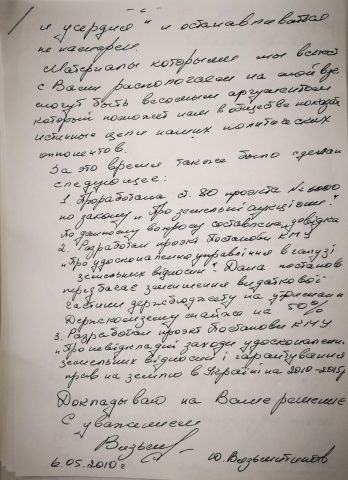 и усердие" и останавливаться
не намерен.
Материалы которыми мы вместе
с Вами располагаем на мой взг.
могут быть весомым аргументом
который поможет нам в обществе показать
истинные цели наших политических
оппонентов.
За это время также было сделано
следующее:
1. Проработана ст. 80 проэкта № 6000
по закону „Про земельні аукціони".
По данному вопросу составлена довідка
2. Разработан проэкт Постанови КМУ
„Про удосконалення управління в галузі
земельних відносин". Дана постанов
передбачає зменшення видаткової
частини держбюджету на утримання
Держкомзему майже на 50%
3. Разработан проэкт Постанови КМУ
„Про невідкладні заходи удосконален.
земельних відносин і гарантування
прав на землю в Україні на 2010-2015р
Докладываю на Ваше решение
С уважением
6.05.2010г